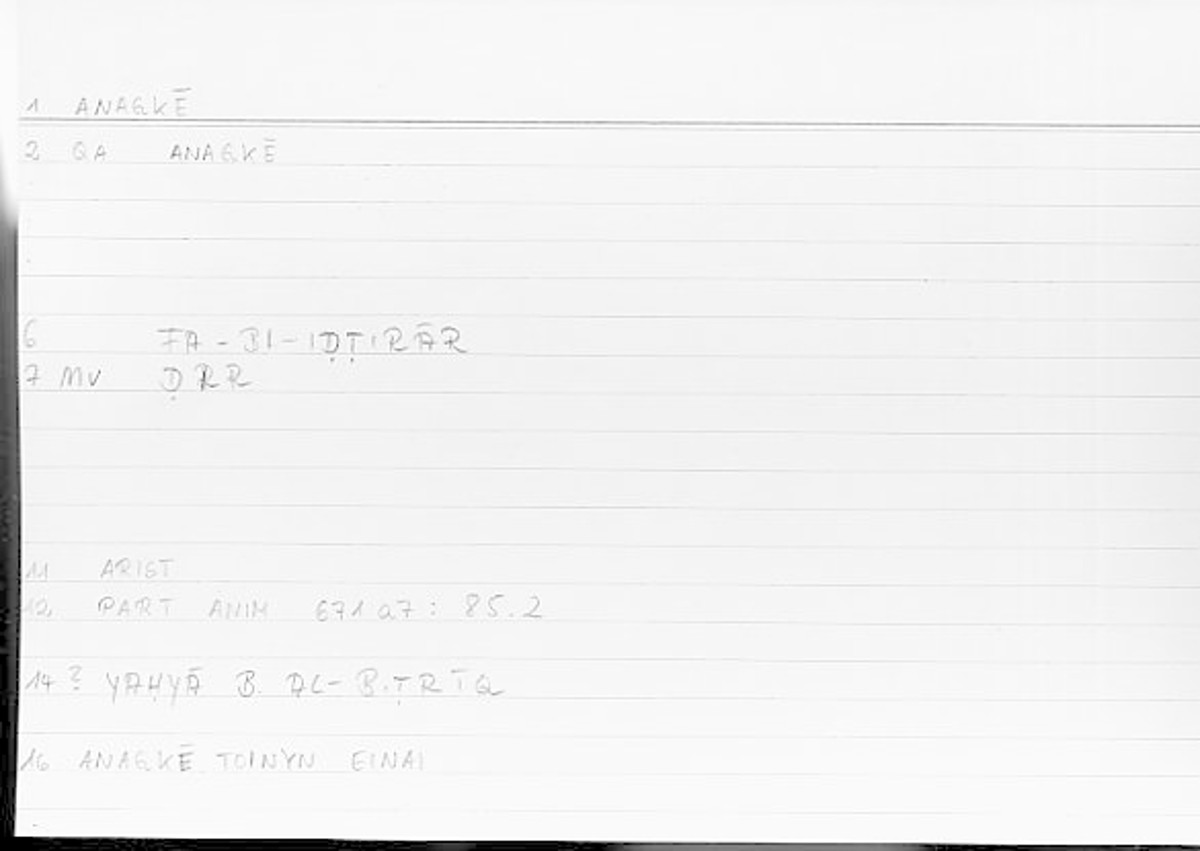 1 ANAGKĒ
2 QA ANAGKĒ
6 FA - BI - IḌṬIRĀR
7 MV ḌRR
11 ARIST
12 PART ANIM 671a7 : 85.2
14 ? YAḤYĀ B. AL- B.ṬRĪQ
16 ANAGKĒ TOINYN EINAI